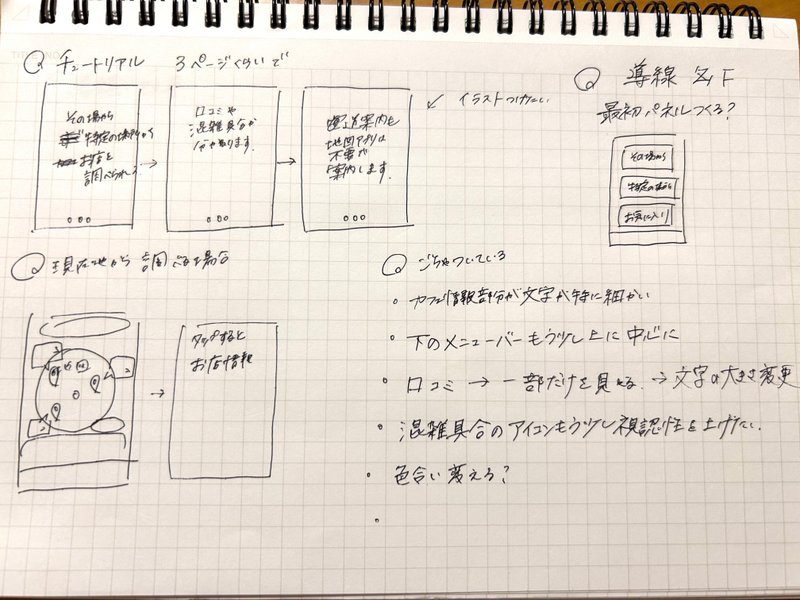 チュートリアル 3ページくらいで
その場から
特定の場所から
お店を
調べられる
口コミや
混雑具合が
分かります。
道案内も
地図アプリは
不要で
案内します。
イラストつけたい
導線
最初パネルつくる?
その場から
特定の場所
お気に入り
現在地から調べる場合
タップすると
お店情報
ごちゃついている
・カフェ情報部分が文字が特に細かい
・下のメニューバーもう少し上に中心に
・口コミ → 一部だけを見せる → 文字の大きさ変更
・混雑具合のアイコンもう少し視認性を上げたい
・色合い変える?